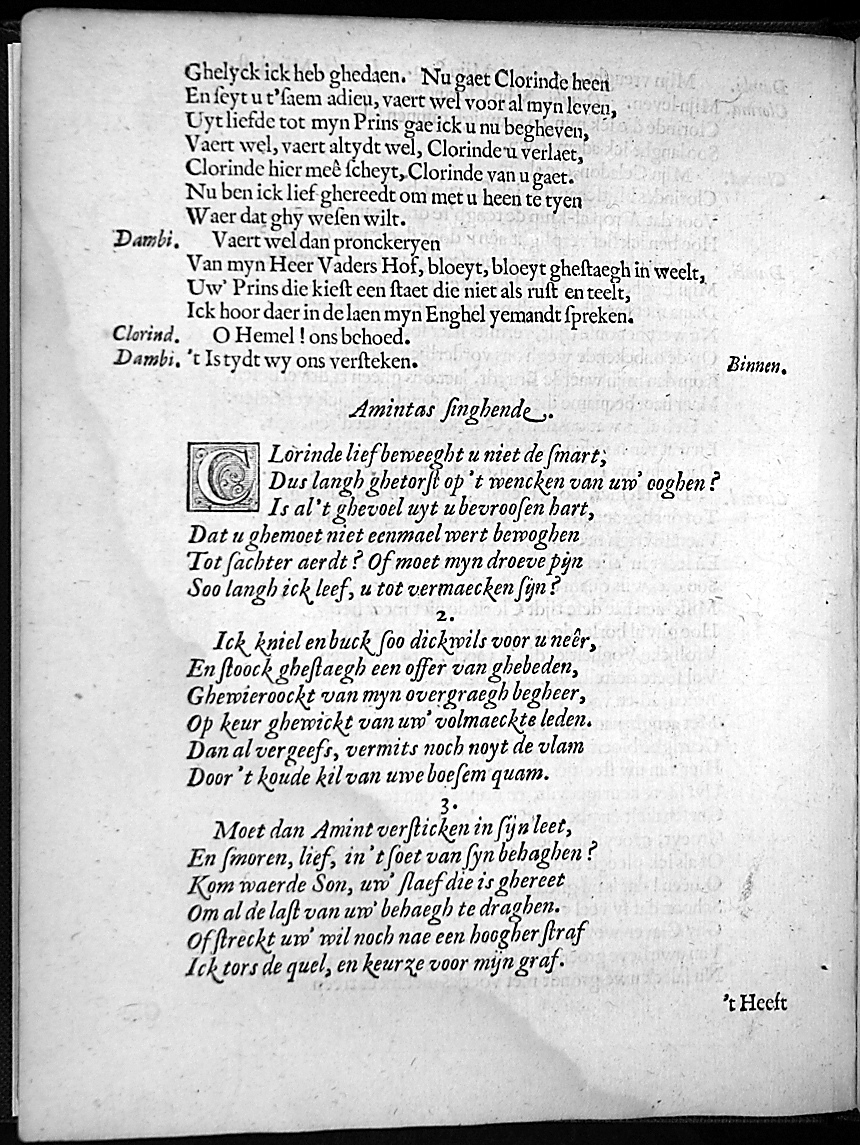 Ghelyck ick heb ghedaen. Nu gaet Clorinde heen
En seyt u t'saem adieu, vaert wel voor al myn leven,
Uyt liefde tot myn Prins gae ick u nu begheven,
Vaert wel, vaert altydt wel, Clorinde u verlaet,
Clorinde hier meê scheyt, Clorinde van u gaet.
Nu ben ick lief ghereedt om met u heen te tyen
Waer dat ghy wesen wilt.
Dambi. Vaert wel dan pronckeryen
Van myn Heer Vaders Hof, bloeyt, bloeyt ghestaegh in weelt,
Uw' Prins die kiest een staet die niet als rust en teelt,
Ick hoor daer in de laen myn Enghel yemandt spreken.
Clorind. O Hemel! ons behoed.
Dambi. 't Is tydt wy ons versteken. Binnen.
Amintas singhende.
CLorinde lief beweeght u niet de smart;
Dus langh ghetorst op 't wencken van uw' ooghen?
Is al 't ghevoel uyt u bevroosen hart,
Dat u ghemoet niet eenmael wert bewoghen
Tot sachter aerdt? Of moet myn droeve pijn
Soo langh ick leef, u tot vermaecken sijn?
2.
Ick kniel en buck soo dickwils voor u neêr,
En stoock ghestaegh een offer van ghebeden,
Ghewieroockt van myn overgraegh begheer,
Op keur ghewickt van uw' volmaeckte leden.
Dan al vergeefs, vermits noch noyt de vlam
Door 't koude kil van uwe boesem quam.
3.
Moet dan Amint versticken in sijn leet,
En smoren, lief, in 't soet van syn behaghen?
Kom waerde Son, uw' slaef die is ghereet
Om al de last van uw' behaegh te draghen.
Of streckt uw' wil noch nae een hoogher straf
Ick tors de quel, en keur ze voor mijn graf.
't Heeft